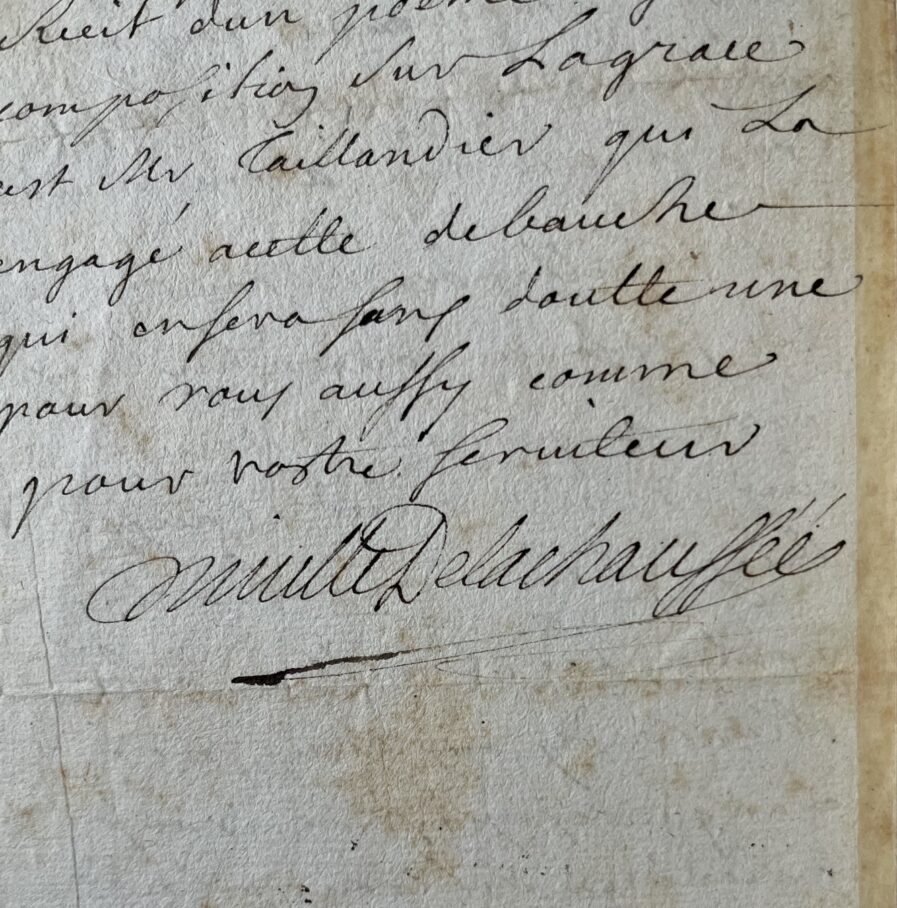 Recit dun poeme
composition sur Lagrace
est Mr Taillandier qui La
engagé acette debauche
qui ensera sans doutte une
pour vous aussy comme
pour vostre serviteur
Delachaussée